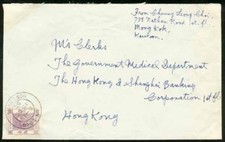 From Cheung Leong Choi
738 Nathan Road
Mong Kok,
Kowloon.
M/s Clerks
The Government Medical Department
The Hong Kong & Shanghai Banking
Corporation
Hong Kong